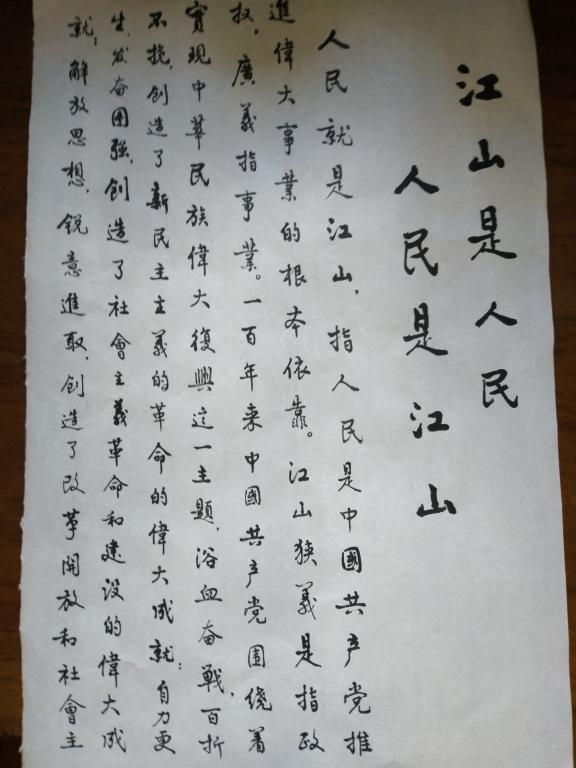 江山是人民
人民是江山
人民就是江山，指人民是中國共产党推
進偉大事業的根本依靠。江山狭義是指政
权，廣義指事業。一百年来中國共产党围绕着
實現中華民族偉大復興这一主題，浴血奋戰，百折
不挠，创造了新民主主義的革命的偉大成就；自力更
生，发奋图强，创造了社會主義革命和建设的偉大成
就；解放思想，锐意進取，创造了改革開放和社會主